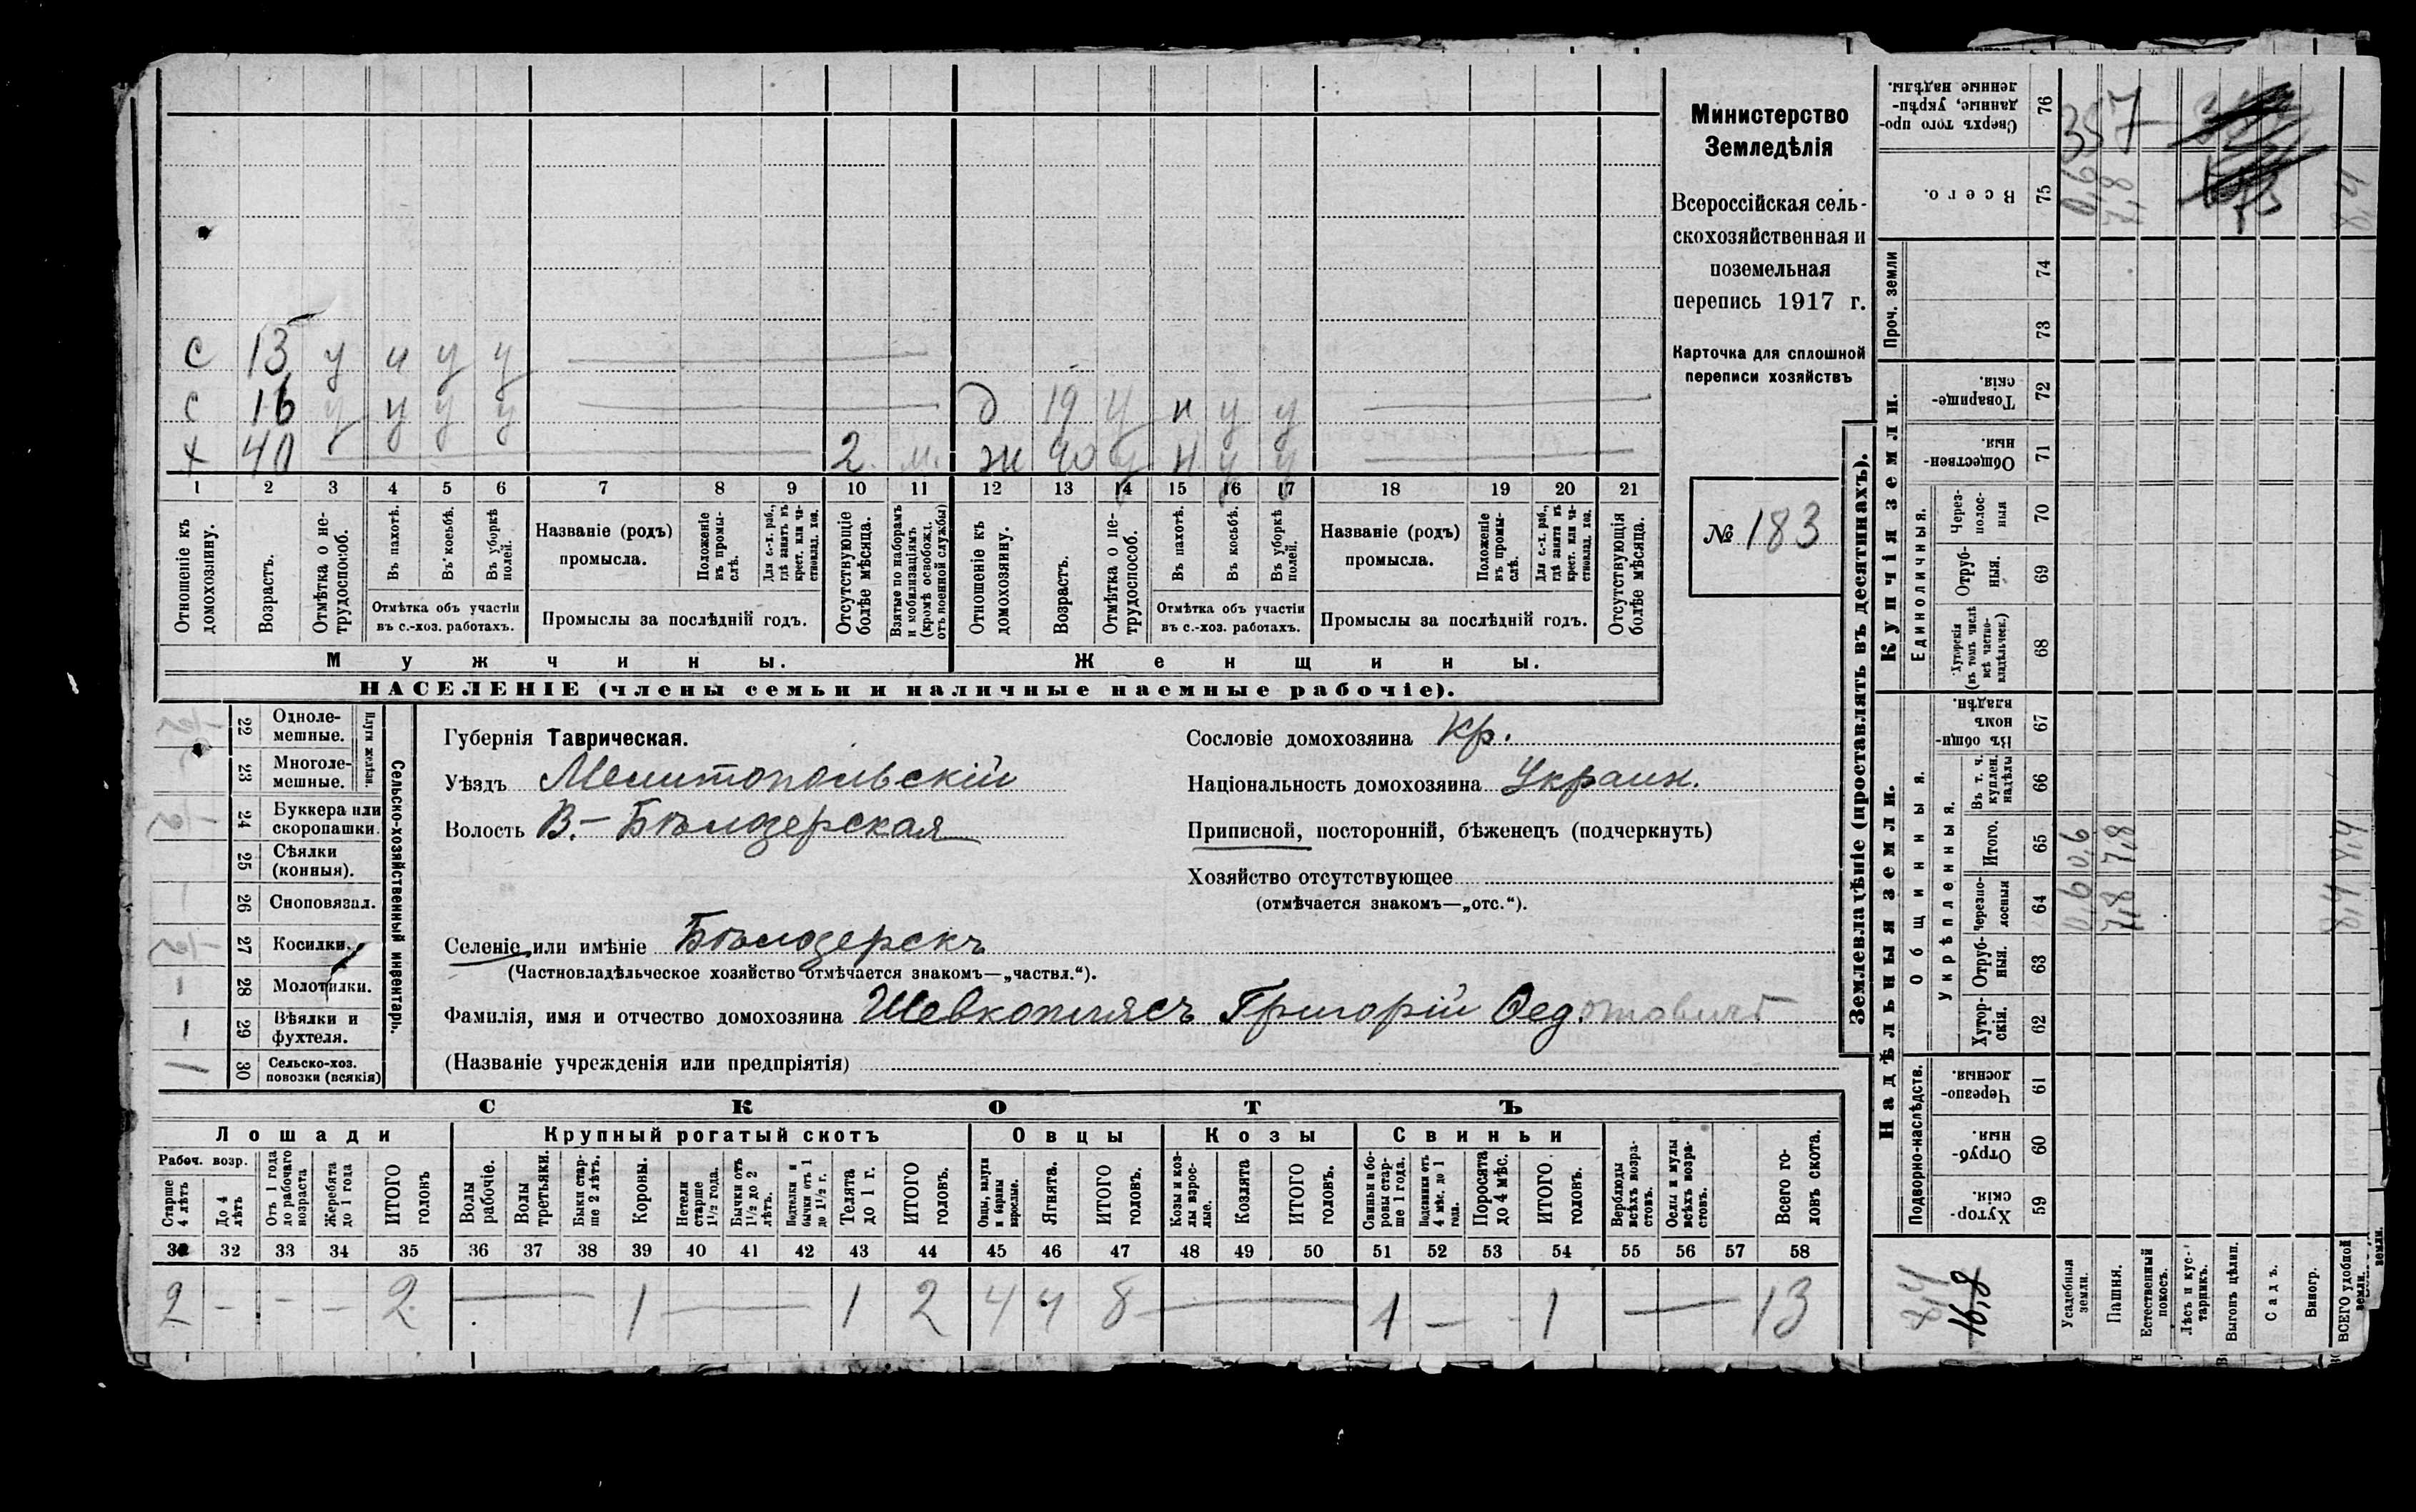 с 13 у и у у
с 16 у у у у д 19 у н у у
х 40 2 м. ж 40 у н у у
1 2 3 4 5 6 7 8 9 10 11 12 13 14 15 16 17 18 19 20 21
Отношеніе къ домохозяину.
Возрастъ.
Отмѣтка о нетрудоспособ.
Въ пахотѣ.
Въ косьбѣ.
Въ уборкѣ полей.
Отмѣтка объ участіи
въ с.-хоз. работахъ.
Названіе (родъ)
промысла.
Положеніе въ промыслѣ.
Для с.-х. раб., гдѣ занятъ въ крест. или частновлад. хоз.
Промыслы за послѣдній годъ.
Отсутствующіе болѣе мѣсяца.
Взятые по наборамъ и мобилизаціямъ (кромѣ освобожд. отъ военной службы)
Отношеніе къ домохозяину.
Возрастъ.
Отмѣтка о нетрудоспособ.
Въ пахотѣ.
Въ косьбѣ.
Въ уборкѣ полей.
Отмѣтка объ участіи
въ с.-хоз. работахъ.
Названіе (родъ)
промысла.
Положеніе въ промыслѣ.
Для с.-х. раб., гдѣ занята въ крест. или частновлад. хоз.
Промыслы за послѣдній годъ.
Отсутствующія болѣе мѣсяца.
Мужчины.
Женщины.
НАСЕЛЕНІЕ (члены семьи и наличные наемные рабочіе).
Министерство
Земледѣлія
Всероссійская сель-
скохозяйственная и
поземельная
перепись 1917 г.
Карточка для сплошной
переписи хозяйствъ
№ 183
Сельско-хозяйственный инвентарь.
Плуги желѣзн.
22 Одноле-
мешные.
23 Многоле-
мешные.
24 Буккера или
скоропашки.
25 Сѣялки
(конныя).
26 Сноповязал.
27 Косилки.
28 Молотилки.
29 Вѣялки и
фухтеля.
1 30 Сельско-хоз.
повозки (всякія)
Губернія Таврическая.
Уѣздъ Мелитопольскій
Волость В.-Бѣлозерская
Селеніе или имѣніе Бѣлозерскъ
(Частновладѣльческое хозяйство отмѣчается знакомъ—„частвл.“).
Фамилія, имя и отчество домохозяина Шевкоплясъ Григорій Ѳедотовичъ
(Названіе учрежденія или предпріятія)
Сословіе домохозяина Кр.
Національность домохозяина Украин.
Приписной, посторонній, бѣженецъ (подчеркнуть)
Хозяйство отсутствующее
(отмѣчается знакомъ—„отс.“).
СКОТЪ
Лошади
Крупный рогатый скотъ
Овцы
Козы
Свиньи
Рабоч. возр.
Старше 4 лѣтъ
До 4 лѣтъ
Отъ 1 года до рабочаго возраста
Жеребята до 1 года
ИТОГО головъ
Волы рабочіе.
Волы третьяки.
Быки старше 2 лѣтъ.
Коровы.
Нетели старше 1½ года.
Бычки отъ 1½ до 2 лѣтъ.
Подтелки и бычки отъ 1 до 1½ г.
Телята до 1 г.
ИТОГО головъ.
Овцы, валухи и бараны взрослые.
Ягнята.
ИТОГО головъ.
Козы и козлы взрослые.
Козлята
ИТОГО головъ.
Свиньи и боровы старше 1 года.
Подсвинки отъ 4 мѣс. до 1 года.
Поросята до 4 мѣс.
ИТОГО головъ.
Верблюды всѣхъ возрастовъ.
Ослы и мулы всѣхъ возрастовъ.
Всего головъ скота.
31 32 33 34 35 36 37 38 39 40 41 42 43 44 45 46 47 48 49 50 51 52 53 54 55 56 57 58
2 - - - 2 — 1 — 1 2 4 4 8 — 1 — - 1 — 13
Землевладѣніе (проставлять въ десятинахъ).
Купчія земли.
Надѣльныя земли.
Сверхъ того проданные, укрѣпленные надѣлы. 76 357
Всего. 75 0,6 7,8 8,4
Проч. земли
74
73
Товарищескія. 72
Общественныя. 71
Единоличныя.
Черезполосныя 70
Отрубныя. 69
Хуторскія (въ томъ числѣ всѣ частновладѣльческ.) 68
Общинныя.
Въ общинномъ владѣн. 67
Укрѣпленныя.
Въ т. ч. куплен. надѣлы 66
Итого. 65 0,6 7,8 8,4
Черезполосныя 64 0,6 7,8 8,4
Отрубныя. 63
Хуторскія. 62
Подворно-наслѣдств.
Черезполосныя. 61
Отрубныя. 60
Хуторскія. 59
Усадебныя земли.
Пашня.
Естественный покосъ.
Лѣсъ и кустарникъ.
Выгонъ цѣлин.
Садъ.
Виногр.
ВСЕГО удобной земли.
16,8